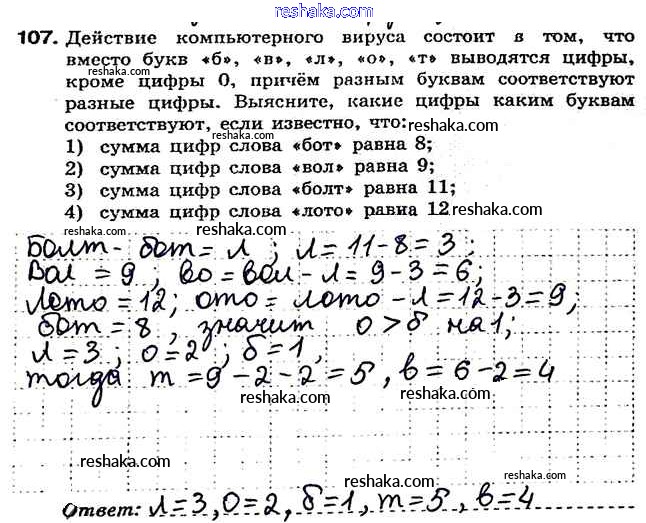 reshaka.com
107. Действие компьютерного вируса состоит в том, что
вместо букв «б», «в», «л», «о», «т» выводятся цифры,
reshaka.com
кроме цифры 0, причём разным буквам соответствуют
разные цифры. Выясните, какие цифры каким буквам
соответствуют, если известно, что: reshaka.com
reshaka.com
1) сумма цифр слова «бот» равна 8;
2) сумма цифр слова «вол» равна 9;
reshaka.com
3) сумма цифр слова «болт» равна 11;
4) сумма цифр слова «лото» равна 12
reshaka.com
Болт - бот = л ; л = 11 - 8 = 3 ;
Вол = 9 ; во = вол - л = 9 - 3 = 6 ;
reshaka.com
Лото = 12; ото = лото - л = 12 - 3 = 9 ;
reshaka.com
бот = 8 , значит о > б на 1 ;
л = 3 ; о = 2 ; б = 1 ,
reshaka.com
тогда т = 9 - 2 - 2 = 5 , в = 6 - 2 = 4
reshaka.com
reshaka.com
reshaka.com
reshaka.com
Ответ: л = 3 , о = 2 , б = 1 , т = 5 , в = 4
reshaka.com